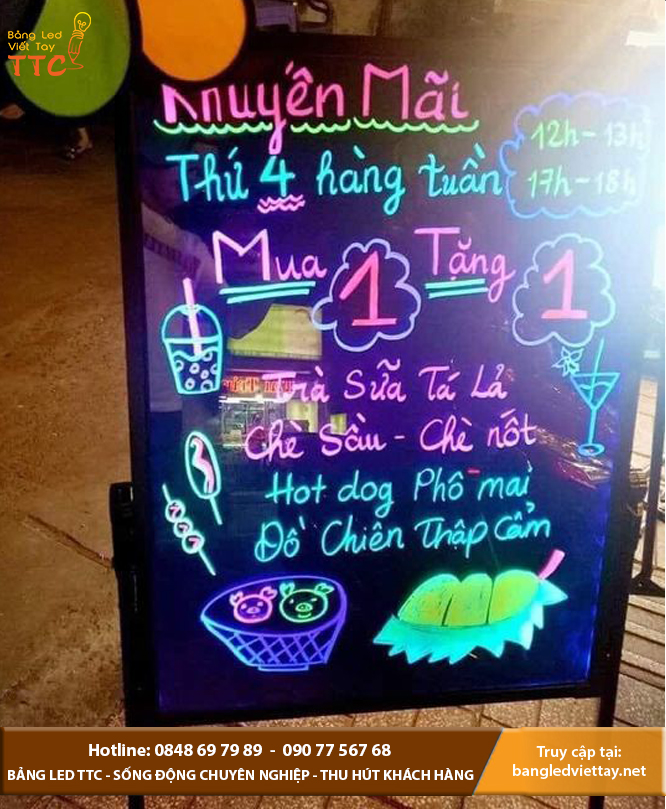 Bảng Led
Viết Tay
TTC
Khuyến Mãi
Thứ 4 hàng tuần
12h - 13h
17h - 18h
Mua 1 Tặng 1
Trà Sữa Tá Lả
Chè Sầu - Chè nốt
Hot dog Phô mai
Đồ Chiên Thập Cẩm
Hotline: 0848 69 79 89 - 090 77 567 68
BẢNG LED TTC - SỐNG ĐỘNG CHUYÊN NGHIỆP - THU HÚT KHÁCH HÀNG
Truy cập tại:
bangledviettay.net